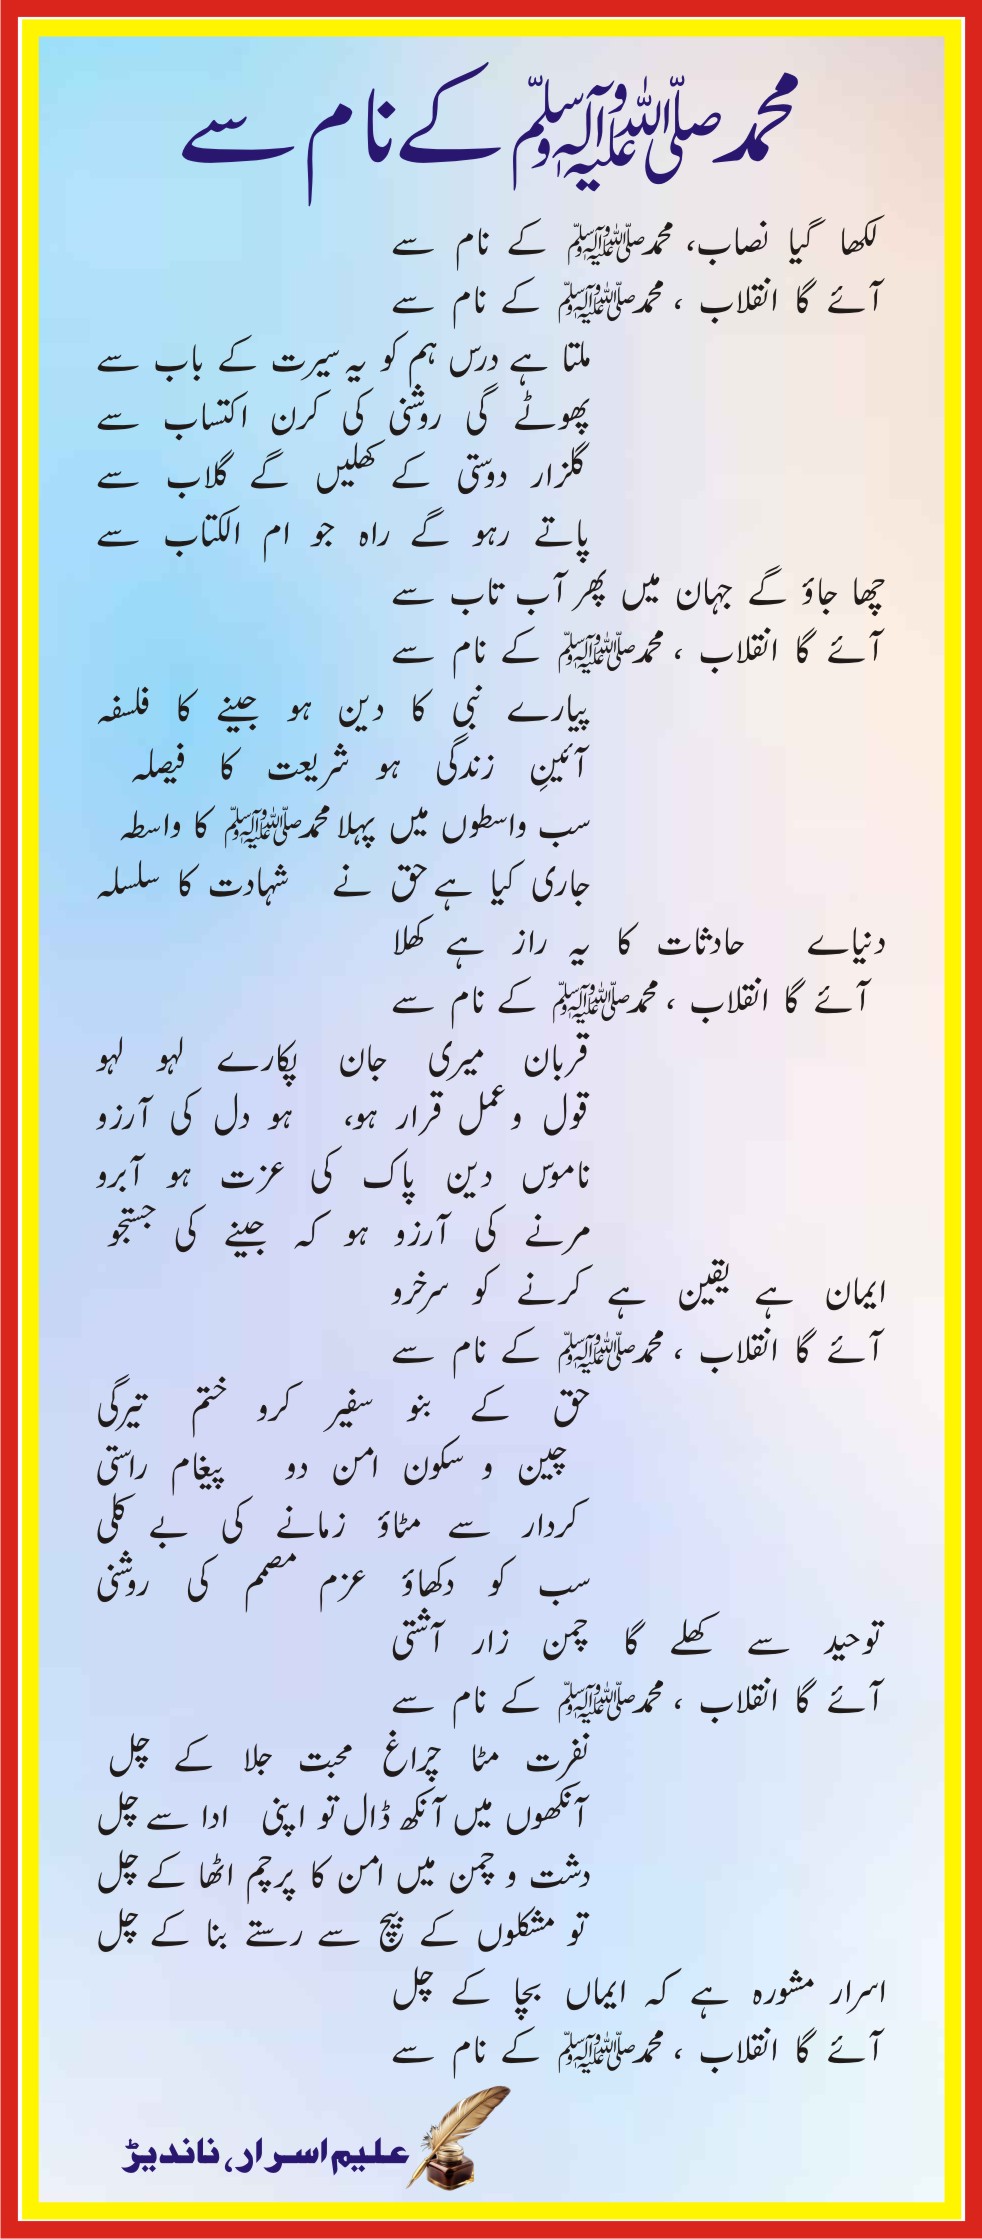 محمد ﷺ کے نام سے
لکھا گیا نصاب، محمدﷺ کے نام سے
آئے گا انقلاب ، محمدﷺ کے نام سے
ملتا ہے درس ہم کو یہ سیرت کے باب سے
پھوٹے گی روشنی کی کرن اکتساب سے
گلزار دوستی کے کھلیں گے گلاب سے
پاتے رہو گے راہ جو ام الکتاب سے
چھا جاؤ گے جہان میں پھر آب تاب سے
آئے گا انقلاب ، محمدﷺ کے نام سے
پیارے نبی کا دین ہو جینے کا فلسفہ
آئینِ زندگی ہو شریعت کا فیصلہ
سب واسطوں میں پہلا محمدﷺ کا واسطہ
جاری کیا ہے حق نے شہادت کا سلسلہ
دنیاے حادثات کا یہ راز ہے کھلا
آئے گا انقلاب ، محمدﷺ کے نام سے
قربان میری جان پکارے لہو لہو
قول و عمل قرار ہو، ہو دل کی آرزو
ناموس دین پاک کی عزت ہو آبرو
مرنے کی آرزو ہو کہ جینے کی جستجو
ایمان ہے یقین ہے کرنے کو سرخرو
آئے گا انقلاب ، محمدﷺ کے نام سے
حق کے بنو سفیر کرو ختم تیرگی
چین و سکون امن دو پیغام راستی
کردار سے مٹاؤ زمانے کی بے کلی
سب کو دکھاؤ عزم مصمم کی روشنی
توحید سے کھلے گا چمن زار آشتی
آئے گا انقلاب ، محمدﷺ کے نام سے
نفرت مٹا چراغ محبت جلا کے چل
آنکھوں میں آنکھ ڈال تو اپنی ادا سے چل
دشت و چمن میں امن کا پرچم اٹھا کے چل
تو مشکلوں کے بیچ سے رستے بنا کے چل
اسرار مشورہ ہے کہ ایماں بچا کے چل
آئے گا انقلاب ، محمدﷺ کے نام سے
علیم اسرار، ناندیڑ